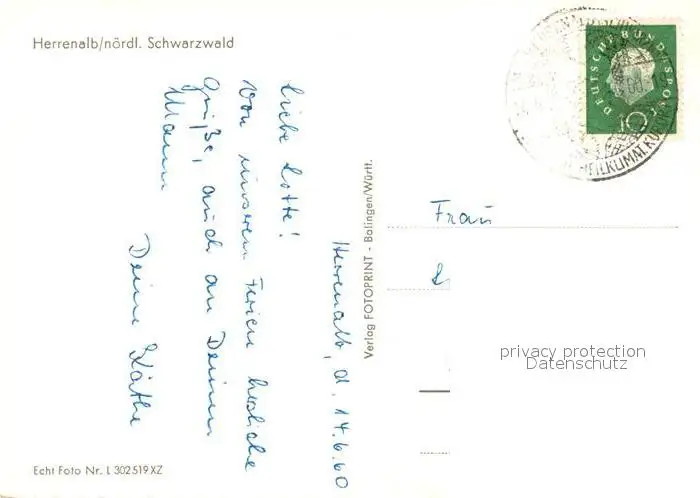 Herrenalb/nördl. Schwarzwald
Herrenalb, d. 14.6.60
Liebe Lotte!
Von unseren Ferien herzliche
Grüße, auch an Deinen
Mann
Deine Käthe
Verlag FOTOPRINT - Balingen/Württ.
DEUTSCHE BUNDESPOST
10
HEILKLIMAT. KURORT
Frau
privacy protection
Datenschutz
Echt Foto Nr. L 302519XZ